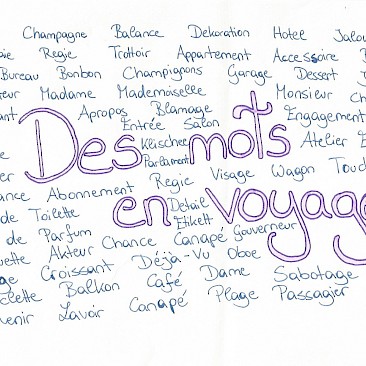 Champagne Balance Dekoration Hotel
Regie Trottoir Appartement Accessoire
Bureau Bonbon Champignons Garage Dessert
Madame Mademoiselle Monsieur
Apropos Blamage Engagement
Entrée Salon
Des mots
Klischee Atelier
Parlament
Regie Visage Wagon
Abonnement
en voyage
de Toilette Detail
Etikett
de Parfum Chance Canapé Gouverneur
Akteur Déjà-Vu Oboe
Croissant Café Dame Sabotage
Balkon
Lavoir Canapé Plage Passagier